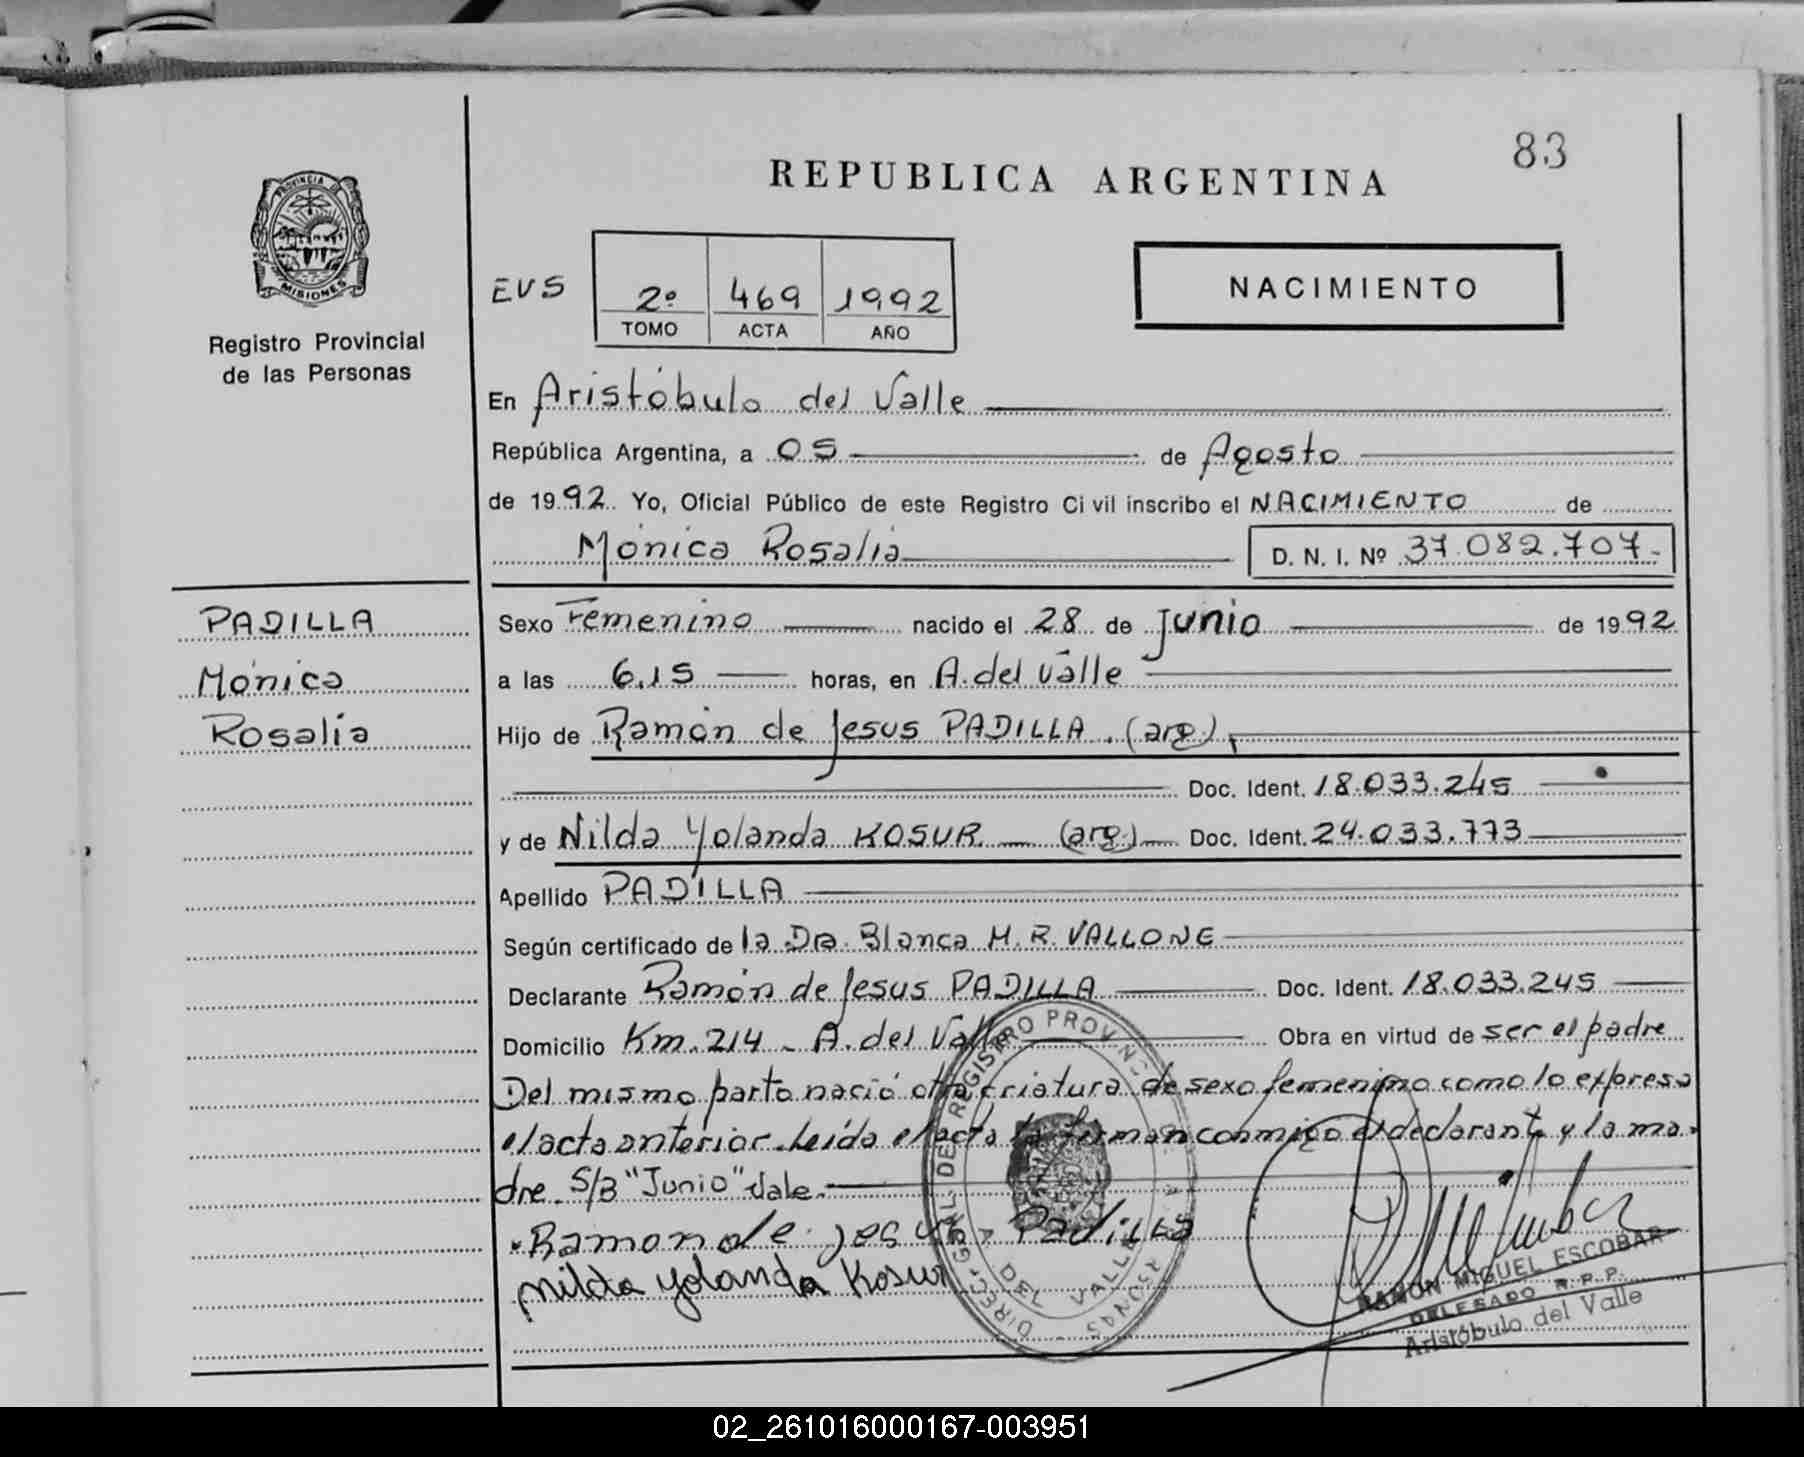 83
REPUBLICA ARGENTINA
PROVINCIA DE
MISIONES
Registro Provincial
de las Personas
EVS
2º 469 1992
TOMO ACTA AÑO
NACIMIENTO
En Aristóbulo del Valle
República Argentina, a 05 de Agosto
de 1992 Yo, Oficial Público de este Registro Civil inscribo el NACIMIENTO de
Mónica Rosalía D. N. I. Nº 37.082.707.-
PADILLA
Mónica
Rosalía
Sexo Femenino nacido el 28 de Junio de 1992
a las 6.15 horas, en A. del Valle
Hijo de Ramón de Jesus PADILLA. (arg),
Doc. Ident. 18.033.245
y de Nilda Yolanda KOSUR (arg.) Doc. Ident. 24.033.773
Apellido PADILLA
Según certificado de la Dra. Blanca M. R. VALLONE
Declarante Ramón de Jesus PADILLA Doc. Ident. 18.033.245
Domicilio Km. 214 - A. del Valle Obra en virtud de ser el padre
Del mismo parto nació otra criatura de sexo femenino como lo expresa
el acta anterior. Leída el acta la firman conmigo el declarante y la ma-
dre. S/B "Junio" Vale.
Ramon de jesus Padilla
nilda yolanda Kosur
DIREC. GRAL. DE REGISTRO PROVINC
A. DEL VALLE
RAMON MIGUEL ESCOBAR
DELEGADO R.P.P.
Aristóbulo del Valle
02_261016000167-003951